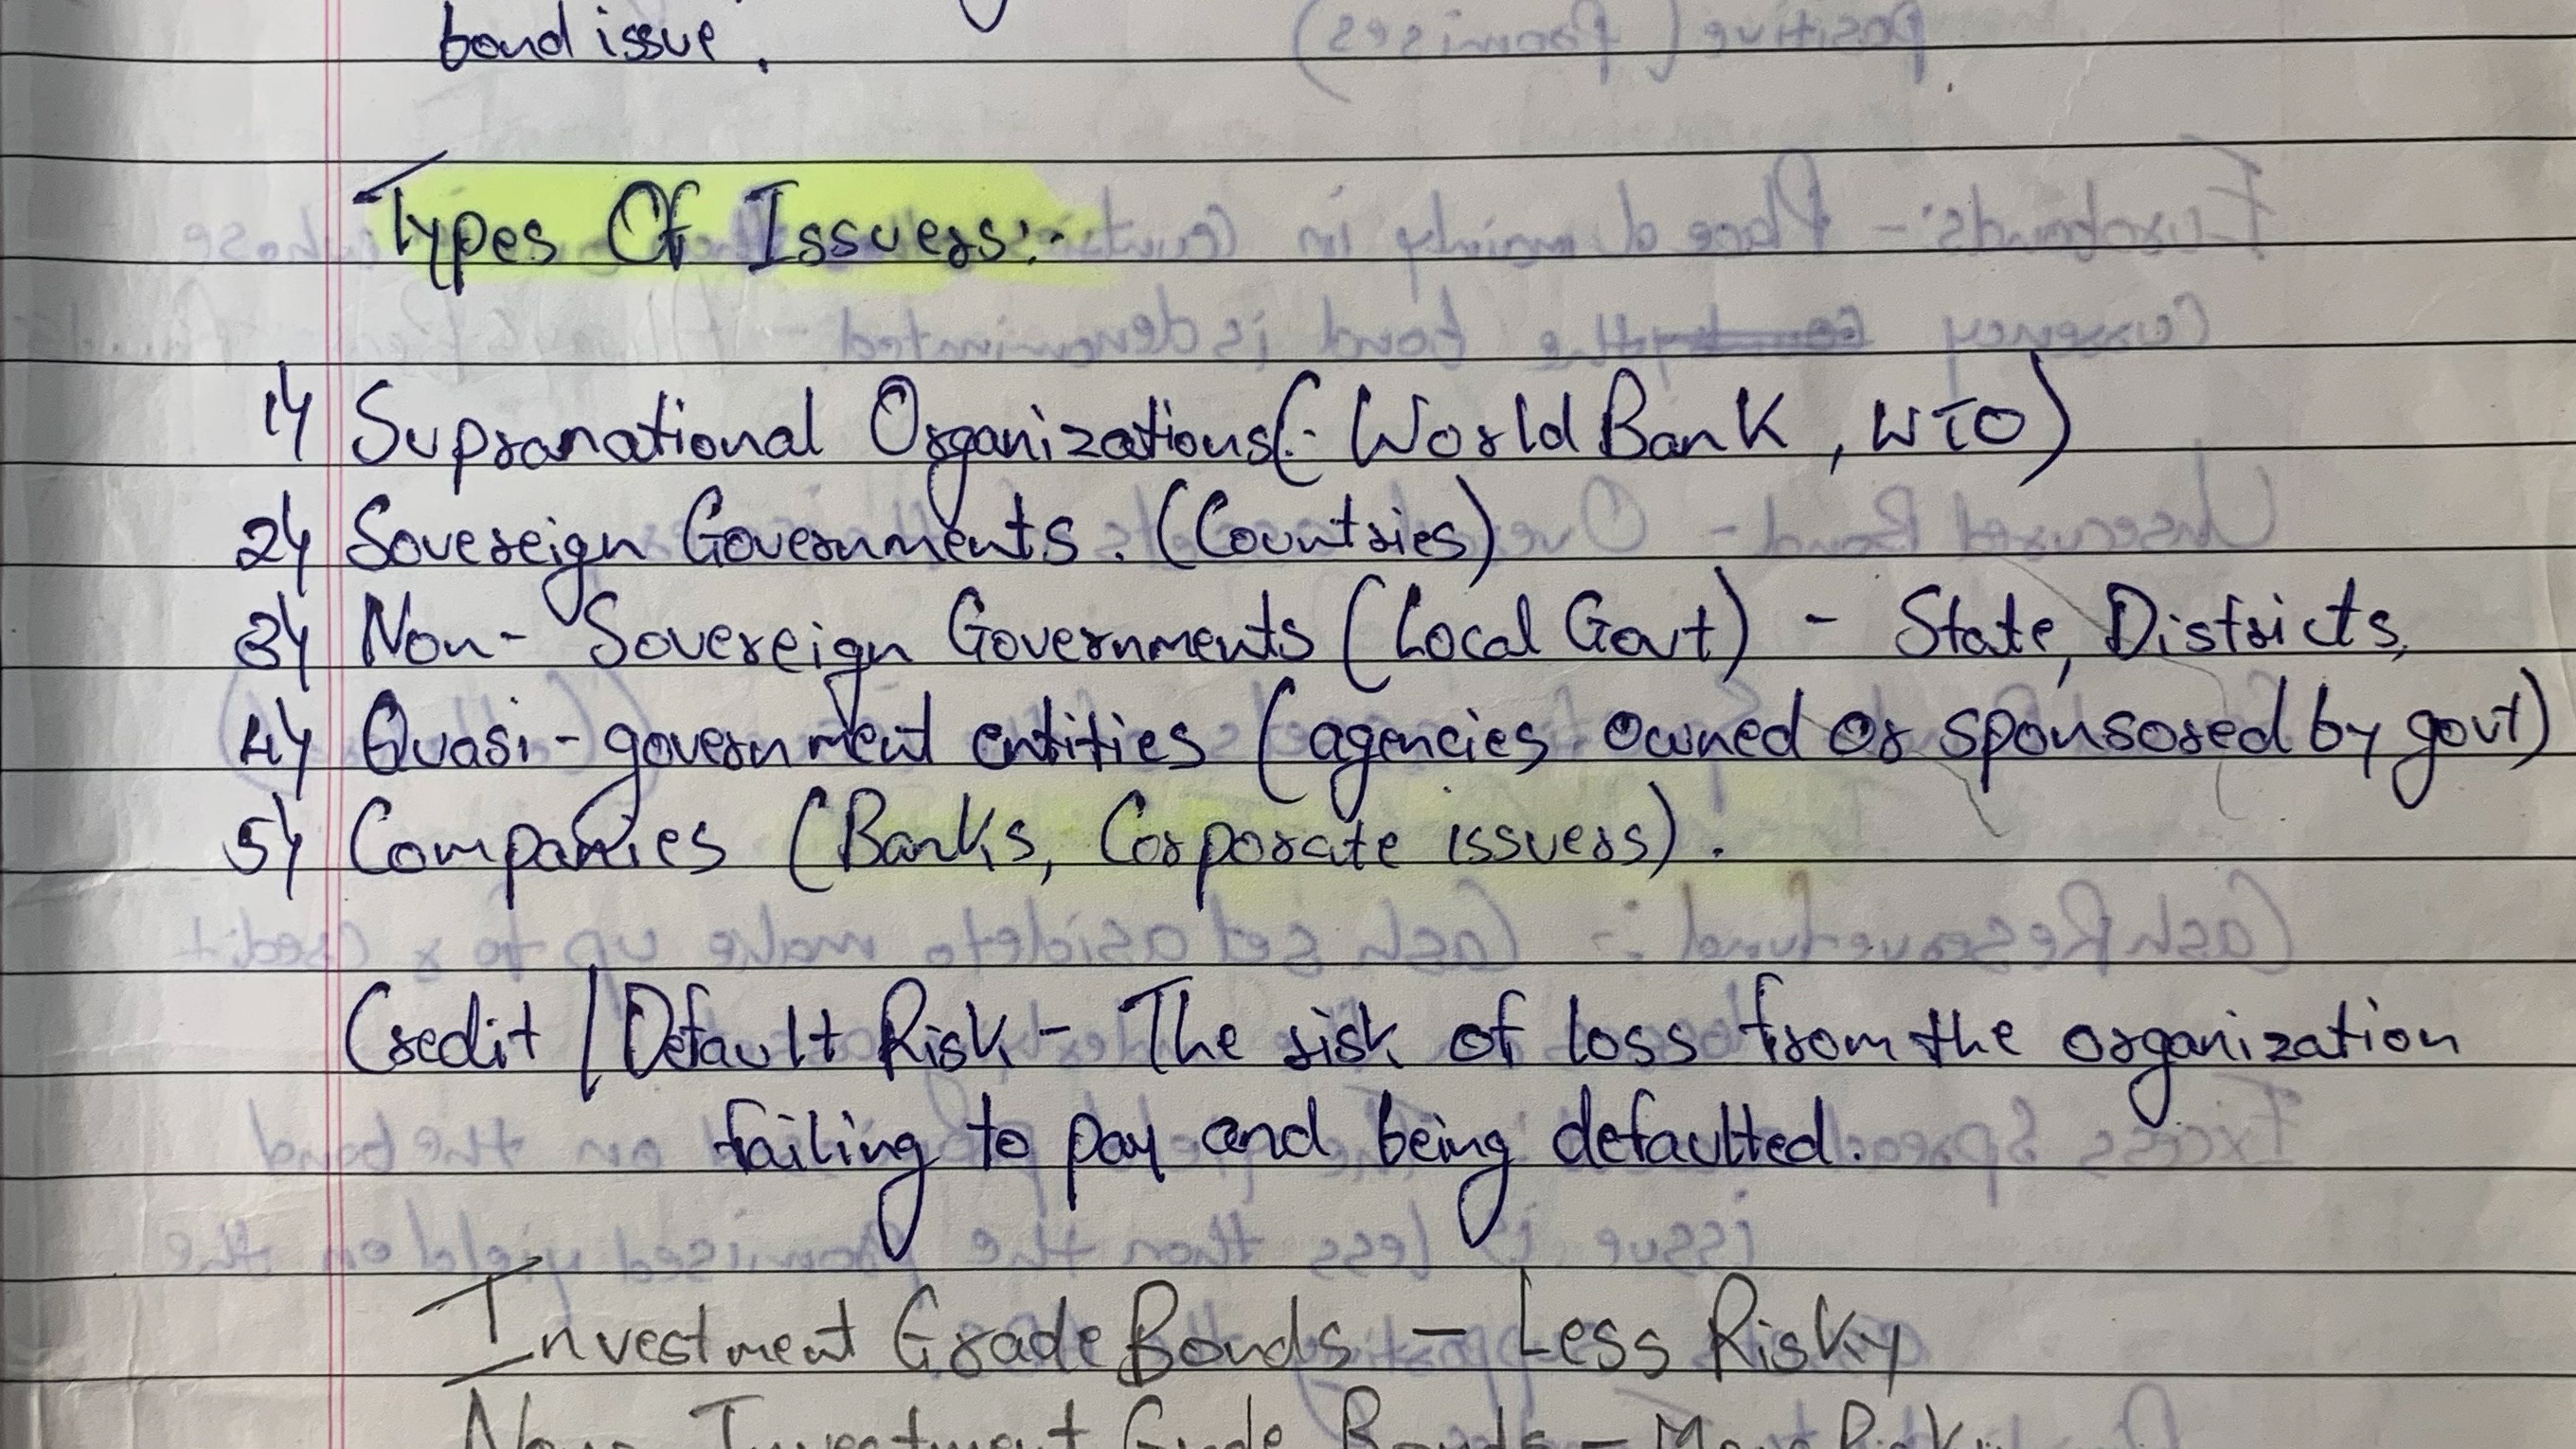 bond issue.
Types Of Issuers:-
1) Supranational Organizations(:- World Bank, WTO)
2) Sovereign Governments. (Countries)
3) Non-Sovereign Governments (Local Govt) - State, Districts,
4) Quasi-government entities (agencies owned or sponsored by govt)
5) Companies (Banks, Corporate issuers).
Credit / Default Risk - The risk of loss from the organization
failing to pay and being defaulted.
Investment Grade Bonds - Less Risky
Non-Investment Grade Bonds - More Risky